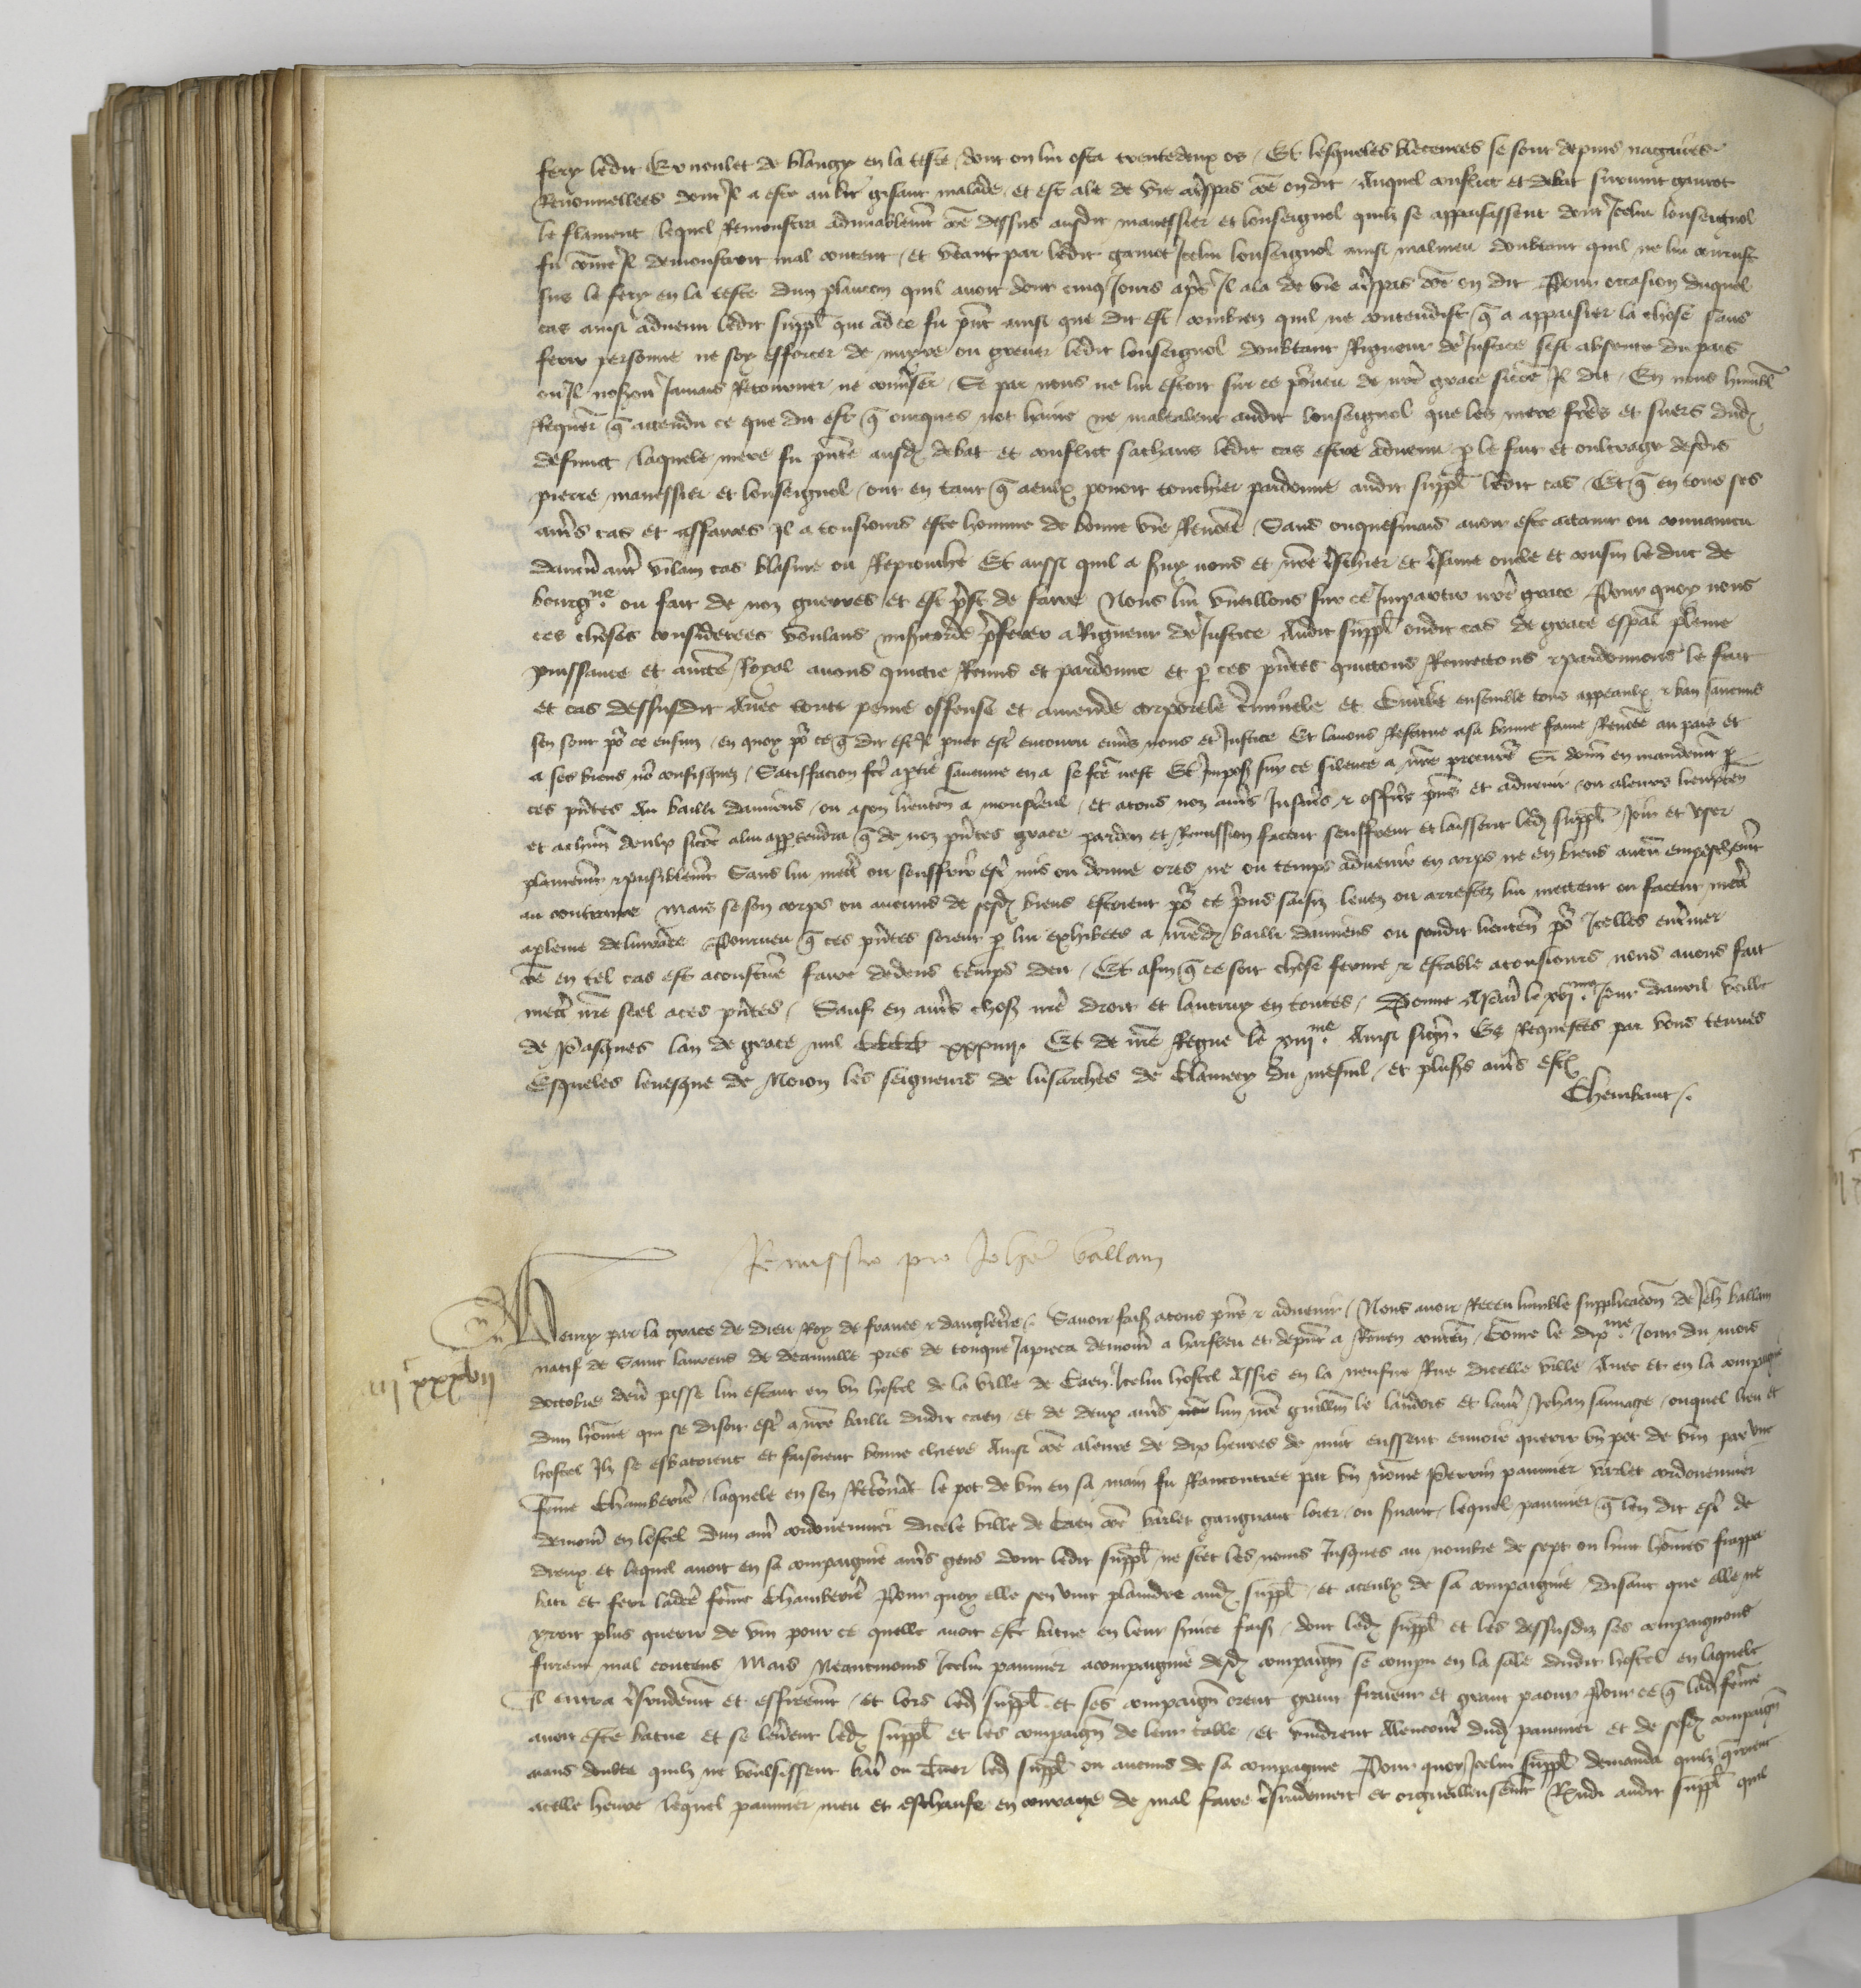 fery ledit Ernoulet de blangy en la teste dont on lui osta trentedeux os / Et lesqueles bleceures se sont depuis nagaires
Renouvellees dont Il a este au lit gisant malade et est ale de vie a trespas com̃e on dit / Auquel conflict et debat survint gamot
le flament lequel Remonstra admiablement com̃e dessus ausdit manessier et lonseignol quilz se appaisassent dont Icelui lonseignol
fu com̃e Il demonstroit mal content / et veant par ledit gamot Icelui lonseignol ainsi malmeu doubtant quil ne lui courust
sus le fery en la teste dun plancon quil avoit dont cinq Jours apres Il ala de vie a trespas com̃e on dit Pour occasion duquel
cas ainsi advenu ledit suppl̃ qui ad ce fu pñt ainsi que dit est / combien quil ne contendist q̃ a appaisier la chose sans
ferir personne ne soy efforcer de nuyre ou grever ledit lonseignol doubtant Rigueur de Justice sest absente du pais
ou Il noseroit Jamais Retourner ne converser / Se par nous ne lui estoit sur ce p̃veu de nr̃e grace sicom̃e Il dit / En nous humbl̃
Requer̃ q̃ attendu ce que dit est q̃ onques not hayne ne maltalent audit lonseignol que les mere freres et suers dud̃
defunct / laquele mere fu pñte ausd̃ debat et conflict sachans ledit cas estre advenu p̱ le fait et oultrage desdis
pierre manessier et lonseignol / ont en tant q̃ a eulx povoit touchier pardonne audit suppl̃ ledit cas / Et q̃ en tous ses
autres cas et affaires Il a tousiours este homme de bonne vie Renom̃ee / Sans onquesmais avoir este attaint ou convaincu
daucun autre vilain cas blasme ou Reprouche Et aussi quil a suy nous et nr̃e treschier et tresame oncle et cousin le duc de
bourg.ne ou fait de noz guerres et est prest de faire Nous lui vueillons sur ce Impartir nr̃e grace Pour quoy nous
ces choses considerees voulans misericorde preferer a Rigueur de Justice Audit suppl̃ oudit cas de grace esp̃al pleine
puissance et auctẽ Royal avons quictie Remis et pardonne et p̱ ces pñtes quictons Remettons ⁊ pardonnons le fait
et cas dessusdit Avec toute peine offense et amende corporele criminele et Civile ensemble tous appeaulx ⁊ ban saucuns
sen sont po ce ensuiz / en quoy po ce q̃ dit est Il puet estre encouru envers nous et Justice Et lavons Restitue a sa bonne fame Renom̃ee au pais et
a ses biens non confisquez / Satisfacion fc̃e a partie saucune en a se fc̃e nest Et Imposõ sur ce silence a nr̃e procureur Si donn̄ en mandement p̱
ces pñtes Au bailli damiens / ou a son lieuteñ a monstreul / et a tous noz autres Justiciers ⁊ officiers pñs et advenir ou a leurs lieuxteñ
et a chũn deulx sicom̃e a lui appartendra q̃ de noz pñtes grace pardon et Remission facent seuffrent et laissent led̃ suppl̃ Joir et user
plainement ⁊ paisiblement Sans lui mectre ou souffrir estre mis ou donne ores ne ou temps advenir en corps ne en biens aucun empeschement
au contraire Mais se son corps ou aucuns de sesd̃ biens estoient po ce prins saisiz levez ou arrestez lui mettent ou facent mectre
a pleine delivrance Pourveu q̃ ces pñtes seront p̱ lui exhibees a nr̃ed̃ bailli damiens ou sondit lieuteñ po Icelles enteriner
com̃e en tel cas est acoustume faire dedens temps deu / Et afin q̃ ce soit chose ferme ⁊ estable a tousiours nous avons fait
mectre nr̃e seel a ces pñtes / Sauf en autres choses nr̃e droit et lautruy en toutes / Donne A Paris le xvi.me Jour davril veille
de Pasques lan de grace mil CCCC xxxiii. Et de nr̃e Regne le xiii.me Ainsi sign̄. Es Requestes par vous tenues
Esqueles levesque de Noion les seigneurs de lusarches de Clamecy du mesnil / et plus̃s autres est̃
Chembaut /.
Remissio pro Johe ballam
Henry par la grace de Dieu Roy de france ⁊ dangleterre / Savoir faisõs a tous pñs ⁊ advenir / Nous avoir Receu humble supplicacion de Jeh̃ ballam
iiiᶜ xxxvii
natif de Saint laurens de deauville pres de touque Japieca demour̃ a harfleu et depuis a Rouen conten̄ / Com̃e le dix.me Jour du mois
doctobre derr̃ passe lui estant en un hostel de la ville de Caen Icelui hostel Assis en la neufve Rue dicelle ville / Avec et en la compaigñ
dun hom̃e qui se disoit estre a nr̃e bailli dudit caen / et de deux autres lun nom̃e guillem̃ le landois et lautre Jehan sauvage / ouquel lieu et
hostel Ilz se esbatoient et faisoient bonne chiere Ainsi com̃e a leure de dix heures de nuit eussent envoie querir un pot de vin par une
fem̃e Chamberiere / laquele en sen Retournant le pot de vin en sa main fu Rancontree par un nom̃e Perrin paumier varlet cordouennier
demour̃ en lostel dun autre cordouennier dicele ville de Caen com̃e varlet gaignant loier / ou servant / lequel paumier q̃ len dit estre de
dreux et lequel avoit en sa compaignie autres gens dont ledit suppl̃ ne scet les noms Jusques au nombre de sept ou huit hom̃es frappa
bati et feri ladite fem̃e Chamberiere Pour quoy elle sen vint plaindre aud̃ suppl̃ / et a ceulx de sa compaignie / disant que elle ne
yroit plus querir de vin pour ce quelle avoit este batue en leur service fais̃ / dont led̃ suppl̃ et les dessusdiz ses compaignons
furent mal contens Mais Neantmoins Icelui paumier acompaignie desd̃ compaign̄ se compu en la sale dudit hostel en laquele
Il entra Rudement et effreement / et lors led̃ suppl̃ et ses compaign̄ orent grant fraieur et grant paour Pour ce q̃ lad̃ fem̃e
avoit este batue et se leverent led̃ suppl̃ et les compaign̄ de leur table / et vindrent A lencontre dud̃ paumier et de sesd̃ compaign̄
aians doubte quilz ne voulsissent batre ou Tuer led̃ suppl̃ ou aucuns de sa compagnie Pour quoy Icelui suppl̃ demanda quilz queroient
a celle heure lequel paumier meu et eschaufe en courage de mal faire Rudement et orgueilleusement Rñdi audit suppl̃ quil